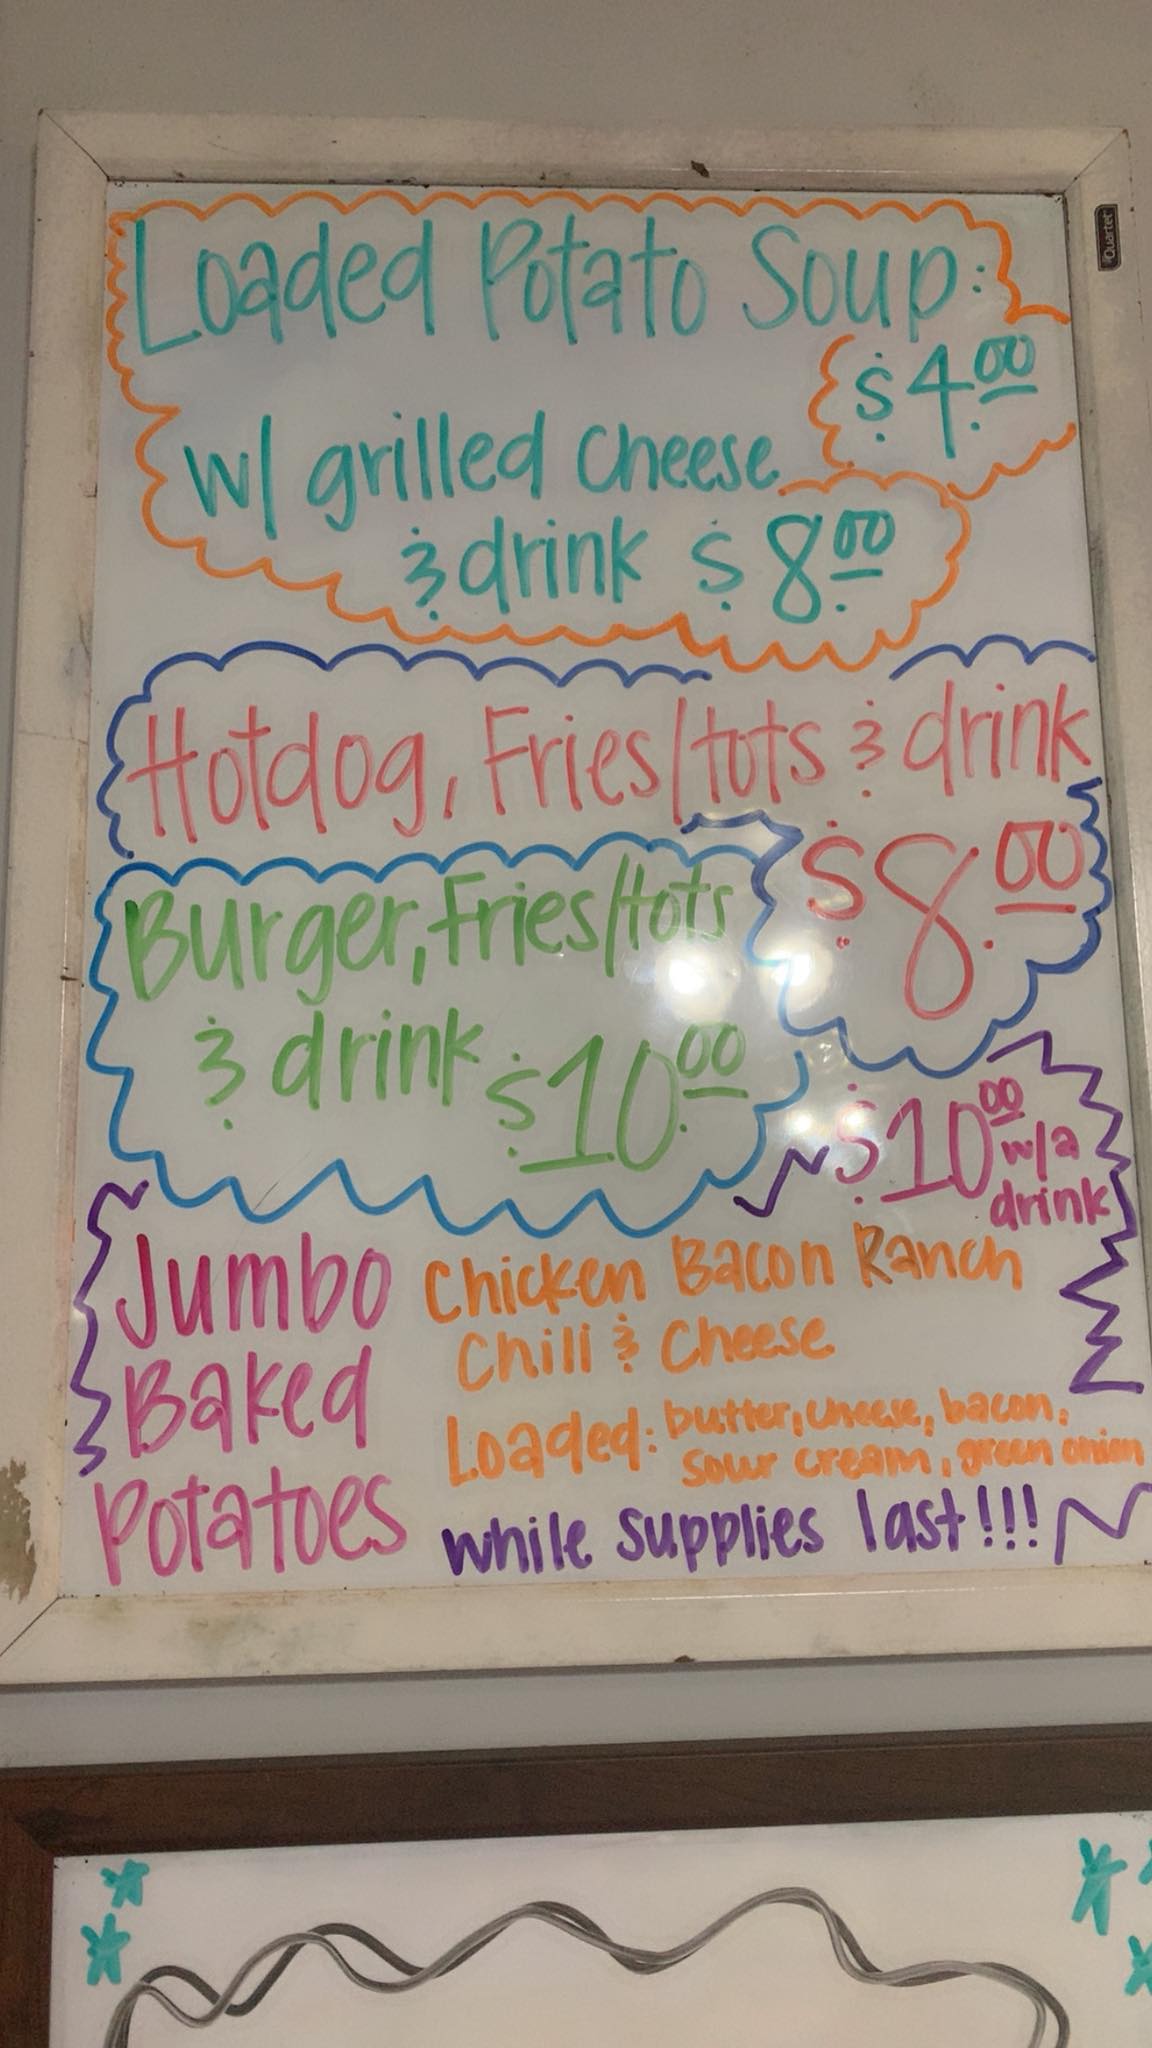 Loaded Potato Soup:
$4.00
w/ grilled cheese
& drink $8.00
Hotdog, Fries/tots & drink
$8.00
Burger, Fries/tots
& drink $10.00
$10.00 w/a
drink
Jumbo
Baked
Potatoes
Chicken Bacon Ranch
Chili & Cheese
Loaded: butter, cheese, bacon,
sour cream, green onion
while supplies last!!!
Quartet